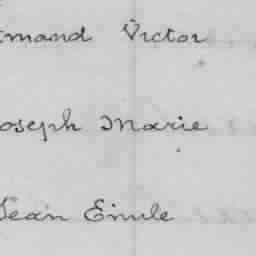 rmand Victor
oseph Marie
Jean Emile